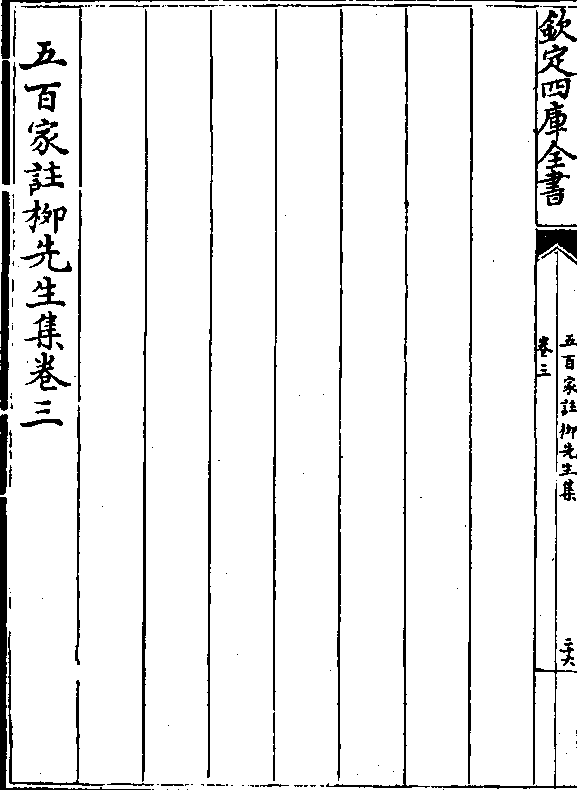 欽定四庫全書
五百家註柳先生集
卷三
二十六
五百家註柳先生集卷三